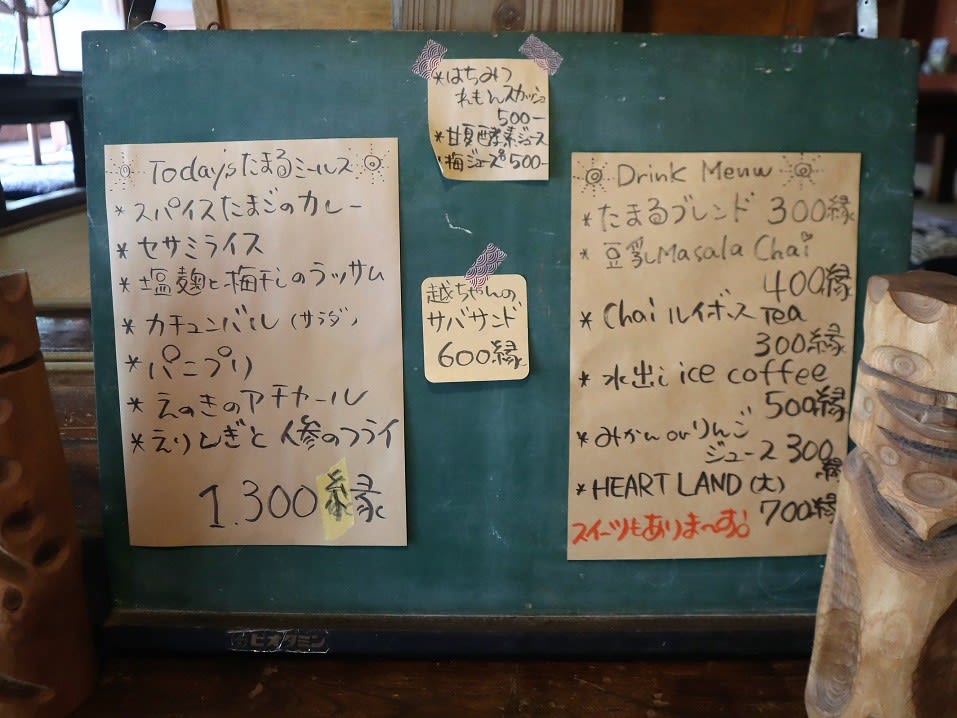 Today'sたまるミールス
*スパイスたまごのカレー
*セサミライス
*塩麹と梅干しのラッサム
*カチュンバル(サラダ)
*パニプリ
*えのきのアチャール
*えりんぎと人参のフライ
1.300縁
*はちみつ
れもんスカッシュ
500-
*甘夏酵素ジュース
*梅ジュース500-
越ちゃんの
サバサンド
600縁
Drink Menu
*たまるブレンド 300縁
*豆乳Masala Chai
400縁
*Chaiルイボス Tea
300縁
*水出し ice coffee
500縁
*みかん or りんご
ジュース 300
縁
*HEART LAND(大)
700縁
スイーツもありま〜す。